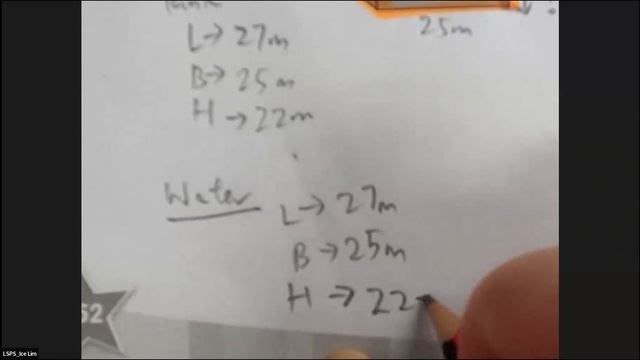 25m
L→27m
B→25m
H→22m
Water L→27m
B→25m
H→22
52
LSPS_Ice Lim